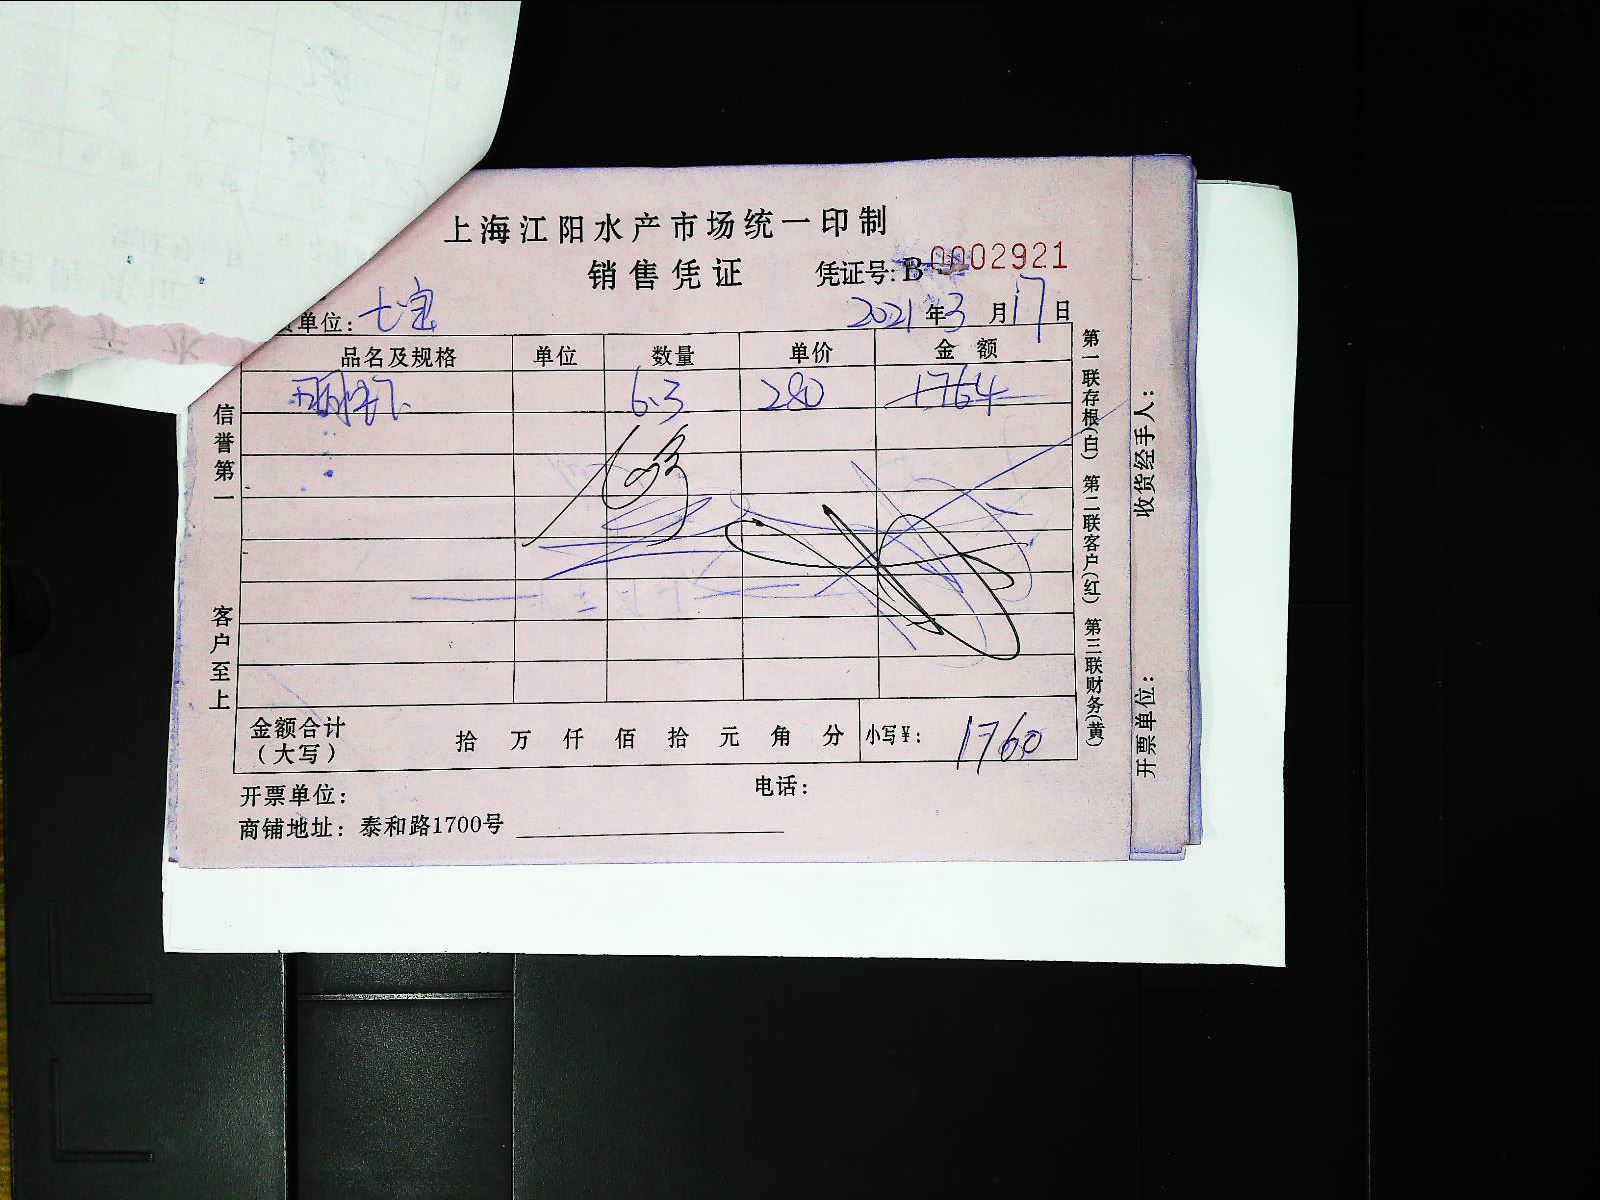 上海江阳水产市场统一印制
销售凭证
凭证号: B 0002921
单位: 七宝
2021年3月17日
品名及规格 单位 数量 单价 金额
6.3 280 1764
信誉第一
客户至上
金额合计
(大写)
拾 万 仟 佰 拾 元 角 分
小写¥: 1760
开票单位:
电话:
商铺地址: 泰和路1700号
第一联存根(白) 第二联客户(红) 第三联财务(黄)
收货经手人:
开票单位: